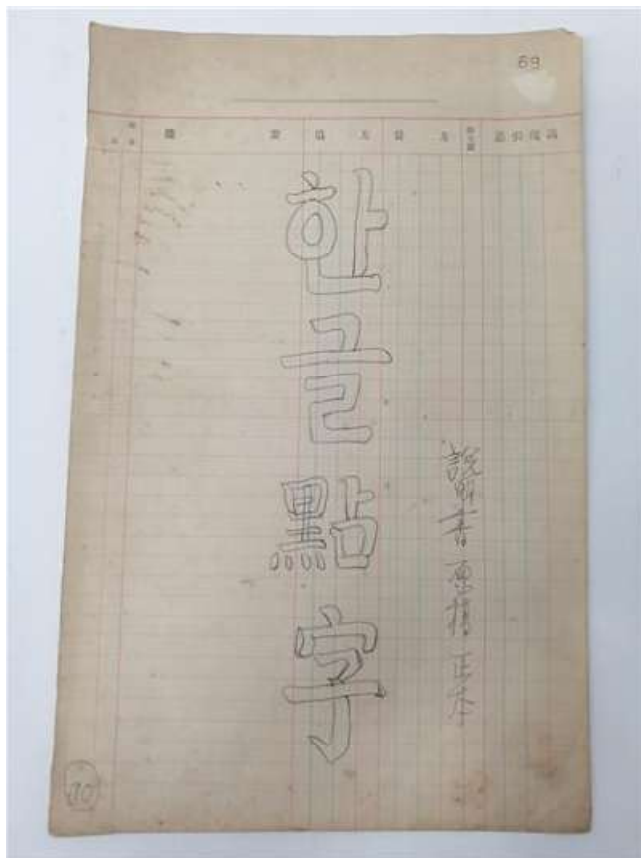 69
한글點字
說明書 原稿 正本
70